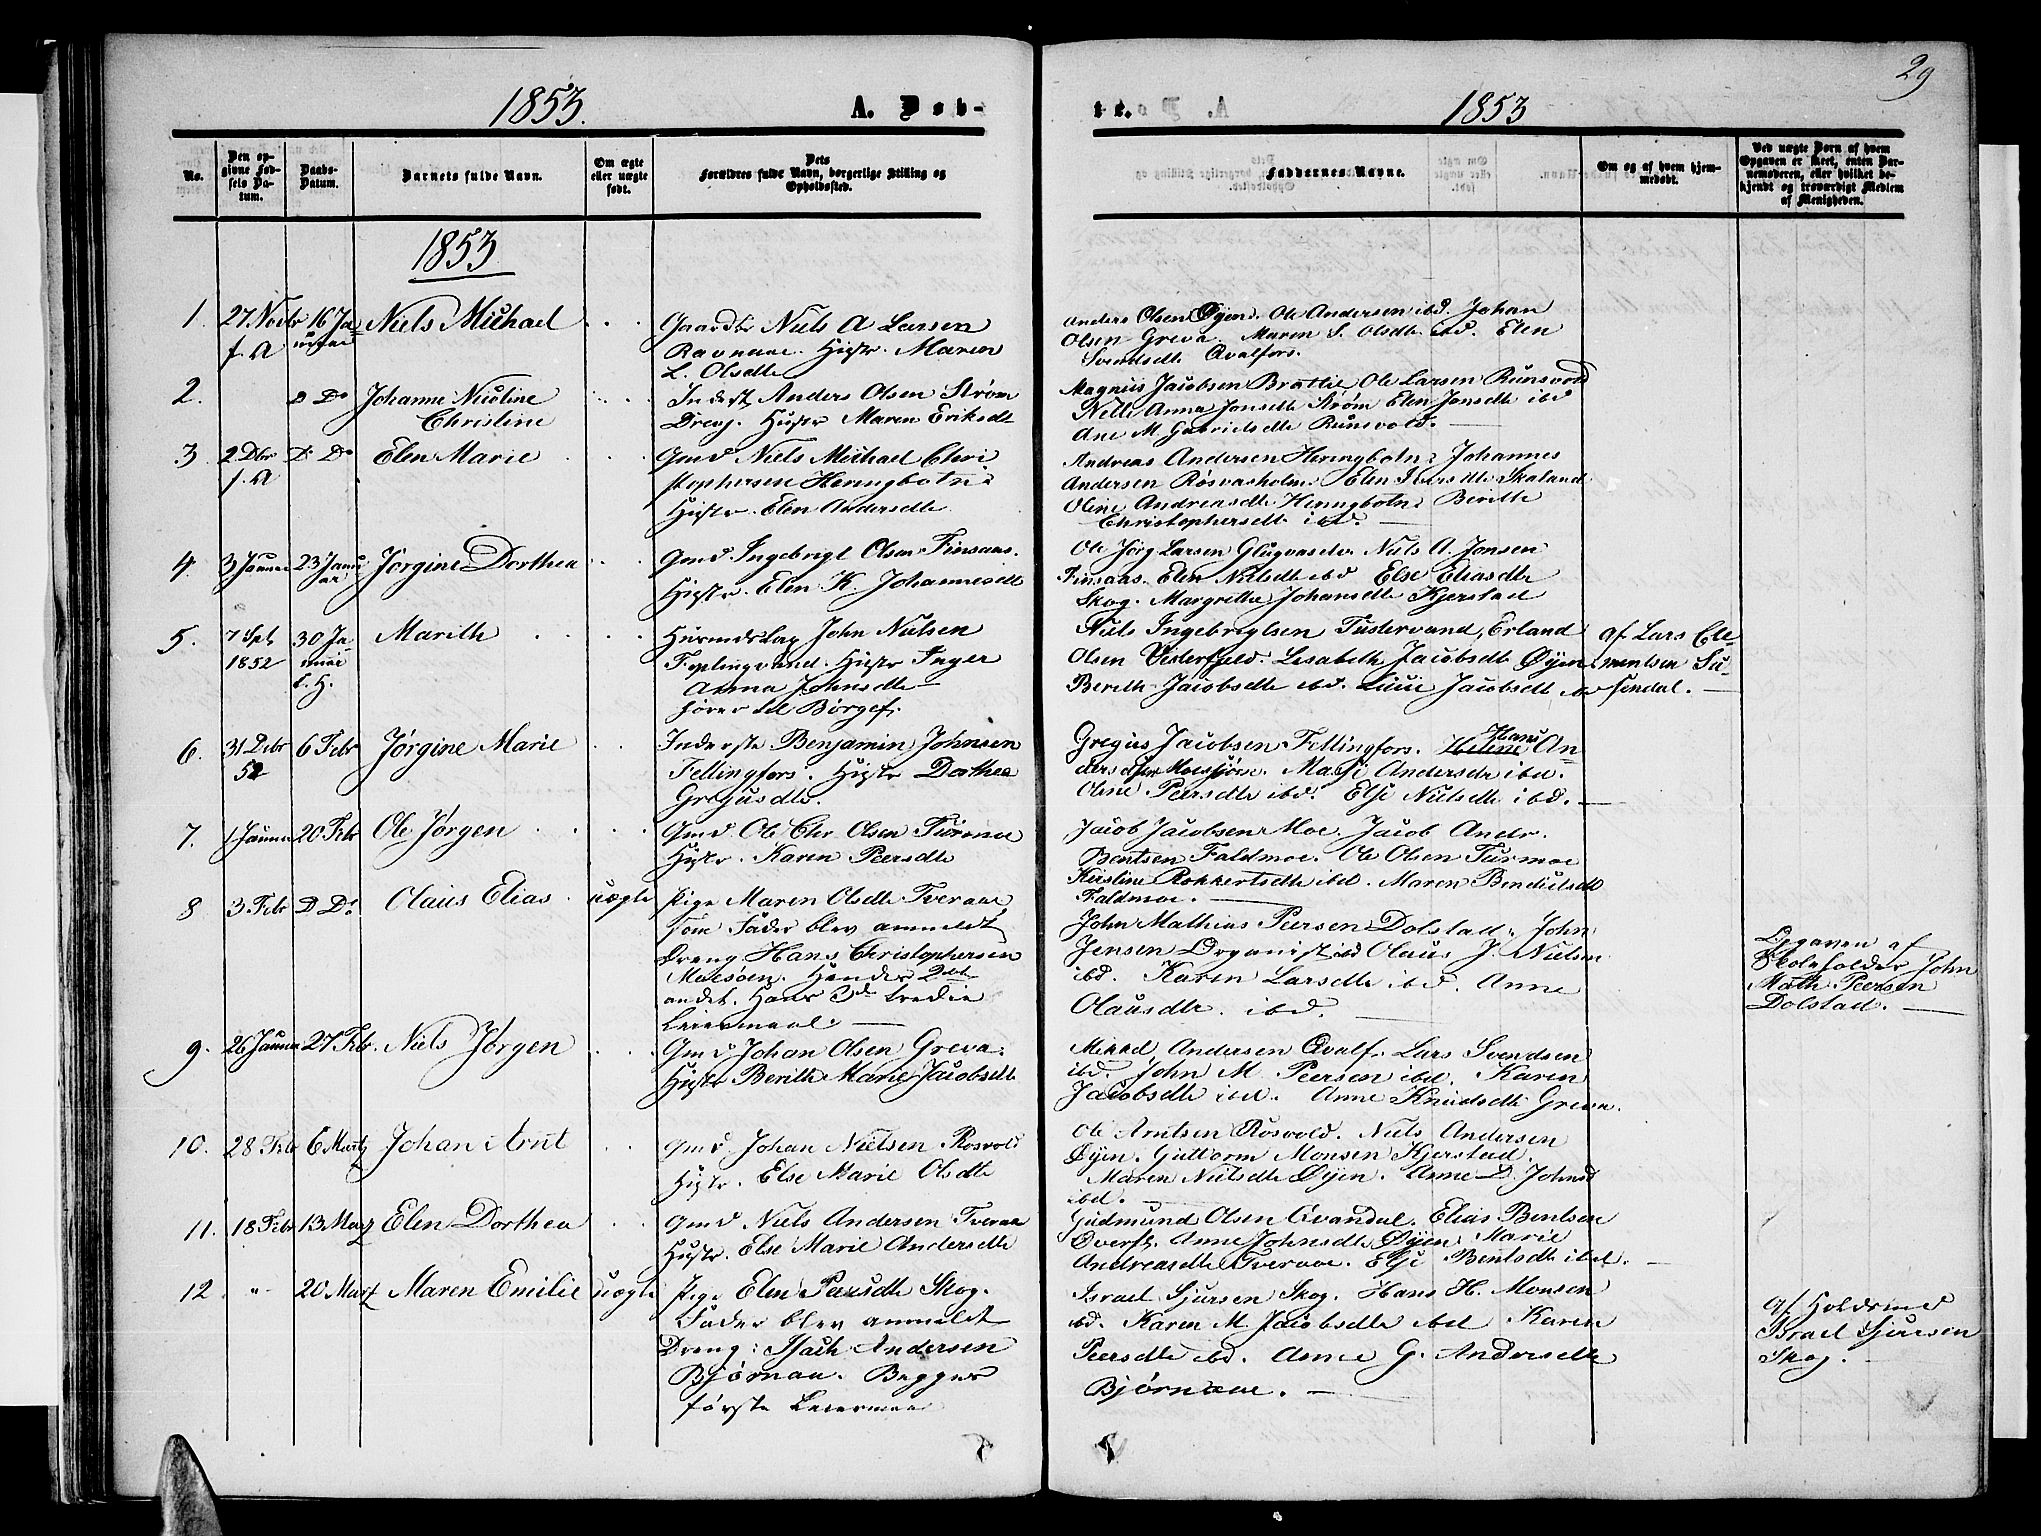 29
1853. A. Døb-
te. 1853
No.
Den op-
givne Fød-
sels Da-
tum.
Daabs-
Datum.
Barnets fulde Navn.
Om ægte
eller uægte
født.
Dets
Forældres fulde Navn, borgerlige Stilling og
Opholdssted.
Faddernes Navne.
Om og af hvem hjem-
medøbt.
Ved uægte Børn af hvem
Opgaven er skeet, enten Bar-
nemoderen, eller hvilket be-
kjendt og troværdigt Medlem
af Menigheden.
1853
1. 27 Novbr 16 Ja
f. A nuar
Niels Michael
Gaardbr Niels A Larsen
Ravnaae. Hustr. Maren
L. Olsdtr
Anders Olsen Øyen. Ole Andersen ibd. Johan
Olsen Greva. Maren S. Olsdtr ibd. Elen
Svendsdtr Qvalfors.
2. D Do Johanne Nicoline
Christine
Inderst Anders Olsen Strøm
Dreng. Hustr Maren Eriksdtr
Magnus Jacobsen Brattlie Ole Larsen Runsvold
Nille Anna Jonsdtr Strøm Elen Jonsdtr ibd
Ane M Gabrielsdtr Runsvold.
3 2 Dbr D Do Elen Marie
f. A
Gmd Niels Michael Chri
stophersen Herringbotn
Hustr. Elen Andersdtr
Andreas Andersen Herringbotn Johannes
Andersen Røsvasholm. Elen Iversdtr Skaland
Oline Andreasdtr Herringbotn Berith
Christophersdtr ibd.
4. 3 Januar 23 Janu
ar
Jørgine Dorthea
Gmd. Ingebrigt Olsen Finsaas.
Hustr. Elen K. Johannesdtr
Ole Jørg Larsen Glugvaselv. Niels A. Jonsen
Finsaas. Elen Nielsdtr ibd Else Eliasdtr
Skog. Margrethe Johansdtr Kjerstad
5. 7 Spt 30 Ja
1852 nuar
t. H.
Marith
John Nielsen
Hustr Inger
Anna Johnsdtr
hører til Børgef.
Niels Ingebrigtsen Tustervand, Erland
Olsen Vesterfjeld. Lisabeth Jacobsdtr Øyen
Berith Jacobsdtr ibd. Lucie Jacobsdtr ibd
af Lars Cle-
mentsen Su-
sendal.
6. 31 Debr 6 Febr Jørgine Marie
52
Inderste Benjamin Johnsen
Fellingfors. Hustr Dorthea
Gregusdtr.
Gregus Jacobsen Fellingfors. Helene Hans An-
dersen Mosjøen. Masi Andersdr ibd.
Oline Peersdtr ibd. Else Nielsdtr ibd.
7. 1 Januar 20 Febr Ole Jørgen
Gmd Ole Chr. Olsen Turmoe
Hustr. Karen Peersdtr
Jacob Jacobsen Moe. Jacob Andr.
Bentsen Faldmoe. Ole Olsen Turmoe
Kirstine Rokkertsdtr ibd. Maren Bendictsdtr
Faldmoe.
8 3 Febr D Do Olaus Elias uægte
Pige Maren Olsdtr Tveraae
Som Fader blev anmeldt
Dreng Hans Christophersen
Mosøen. Hendes 2det
andet. Hans 3de tredie
Leiermaal.
John Mathias Peersen Dolstad. John
Jensen Organist ibd Olaus J. Nielsen
ibd. Karen Larsdtr ibd. Anne
Olausdtr. ibd.
Opgaven af
Skoleholder John
Math. Peersen
Dolstad.
9. 26 Januar 27 Febr. Niels Jørgen
Gmd Johan Olsen Greva.
Hustr Berith Marie Jacobsdtr
Mikkel Andersen Qvalf. Lars Svendsen
ibd. John M. Peersen ibd. Karen
Jacobsdtr ibd. Anne Knudsdtr Greva.
10. 28 Febr 6 Martz Johan Arnt
Gmd Johan Nielsen Rosvold
Hustr. Else Marie Olsdtr
Ole Arntsen Rosvold. Niels Andersen
Øyen. Guttorm Monsen Kjerstad.
Maren Nielsdtr Øyen. Anne D. Johnsd
ibd.
11. 18 Febr 13 Martz Elen Dorthea
Gmd Niels Andersen Tveraae
Hustr. Else Marie Andersdtr
Gudmund Olsen Qvandal. Elias Bentsen
Øverst. Anne Johnsdtr Øyen Marie
Andreasdtr Tveraae. Else Bentsdtr ibd.
12 " 20 Martz Maren Emilie uægte
Pige Elen Paulsdtr Skog.
Fader blev anmeldt
Dreng: Isach Andersen
Bjørnaae. Begges
første Leiermaal
Israel Sjursen Skog. Hans H. Monsen
ibd. Karen M. Jacobsdtr ibd Karen
Peersdtr ibd. Anne G. Andersdtr
Bjørnaae.
af Holdsmd
Israel Sjursen
Skog.